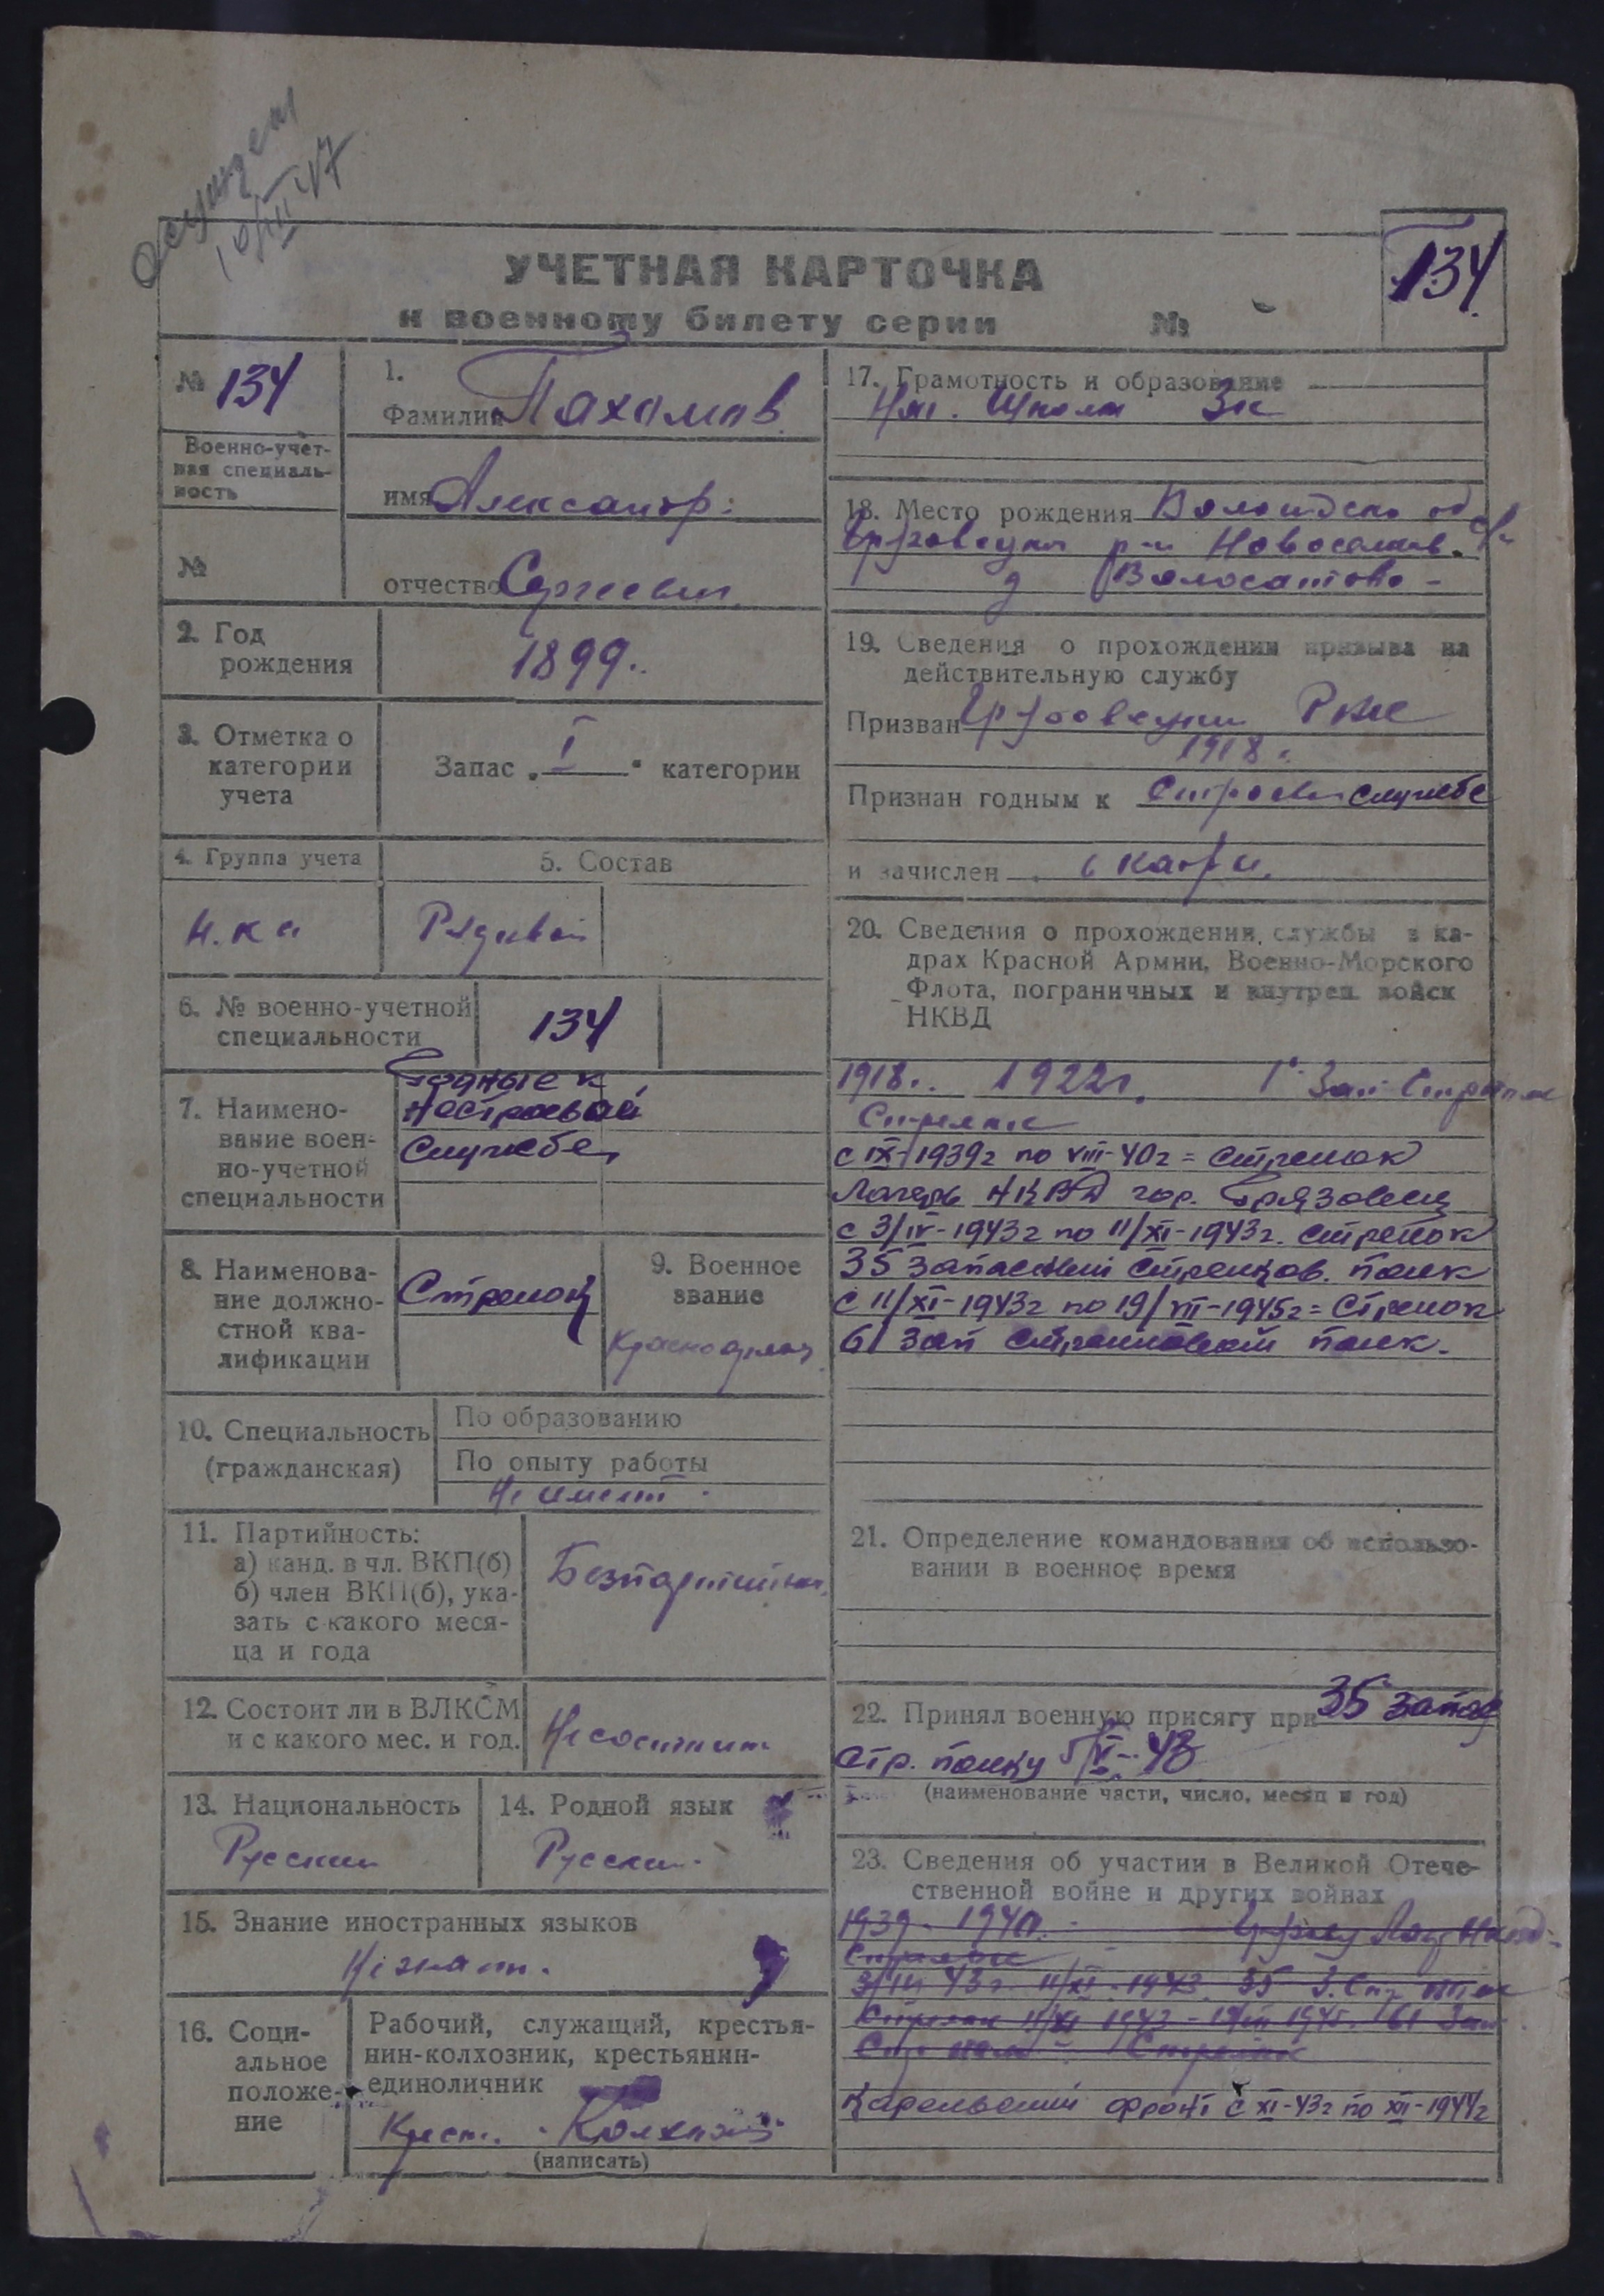 осужден
10/III 47
134
УЧЕТНАЯ КАРТОЧКА
к военному билету серии №
№ 134
Военно-учет-
ная специаль-
ность
№
1.
Фамилия Пахомов
имя Александр
отчество Сергеевич
2. Год
рождения
1899
3. Отметка о
категории
учета
Запас „I“ категории
4. Группа учета
5. Состав
Рядовой
6. № военно-учетной
специальности
134
7. Наимено-
вание воен-
но-учетной
специальности
Годные к
нестроевой
службе
8. Наименова-
ние должно-
стной ква-
лификации
Стрелок
9. Военное
звание
Красноармеец
10. Специальность
(гражданская)
По образованию
По опыту работы
Не имеет
11. Партийность:
а) канд. в чл. ВКП(б)
б) член ВКП(б), ука-
зать с какого меся-
ца и года
Безпартийный
12. Состоит ли в ВЛКСМ
и с какого мес. и год.
Не состоит
13. Национальность
Русский
14. Родной язык
Русский
15. Знание иностранных языков
Не знает.
16. Соци-
альное
положе-
ние
Рабочий, служащий, крестья-
нин-колхозник, крестьянин-
единоличник
Крест. Колхозник
(написать)
17. Грамотность и образование
Нач. Школа 3 к
18. Место рождения Вологодской об
Грязовецкий р-н Новоселков. с/с
д Волосатово
19. Сведения о прохождении призыва на
действительную службу
Призван Грязовецким РВК
1918 г.
Признан годным к Строевой службе
и зачислен в кадры
20. Сведения о прохождении службы в ка-
драх Красной Армии, Военно-Морского
Флота, пограничных и внутрен. войск
НКВД
1918г. 1922г. 1й Зап Стр полк
Стрелок
с IX-1939г по VIII-40г = стрелок
Лагерь НКВД гор. Грязовец
с 3/IV-1943г по 11/XI-1943г. стрелок
35 запасный стрелков. полк
с 11/XI-1943г по 19/VII-1945г = Стрелок
61 зап стрелковый полк.
21. Определение командования об использо-
вании в военное время
22. Принял военную присягу при 35 запас
стр. полку 5/V-43
(наименование части, число, месяц и год)
23. Сведения об участии в Великой Отече-
ственной войне и других войнах
1939 - 1940
Стрелок
11/XI 1943 35 З. Стр полк
Стрелок 11/XI 1943 - 1945 61 Зап
Стр полк Стрелок
Карельский фронт с XI-43г по XII-1944г